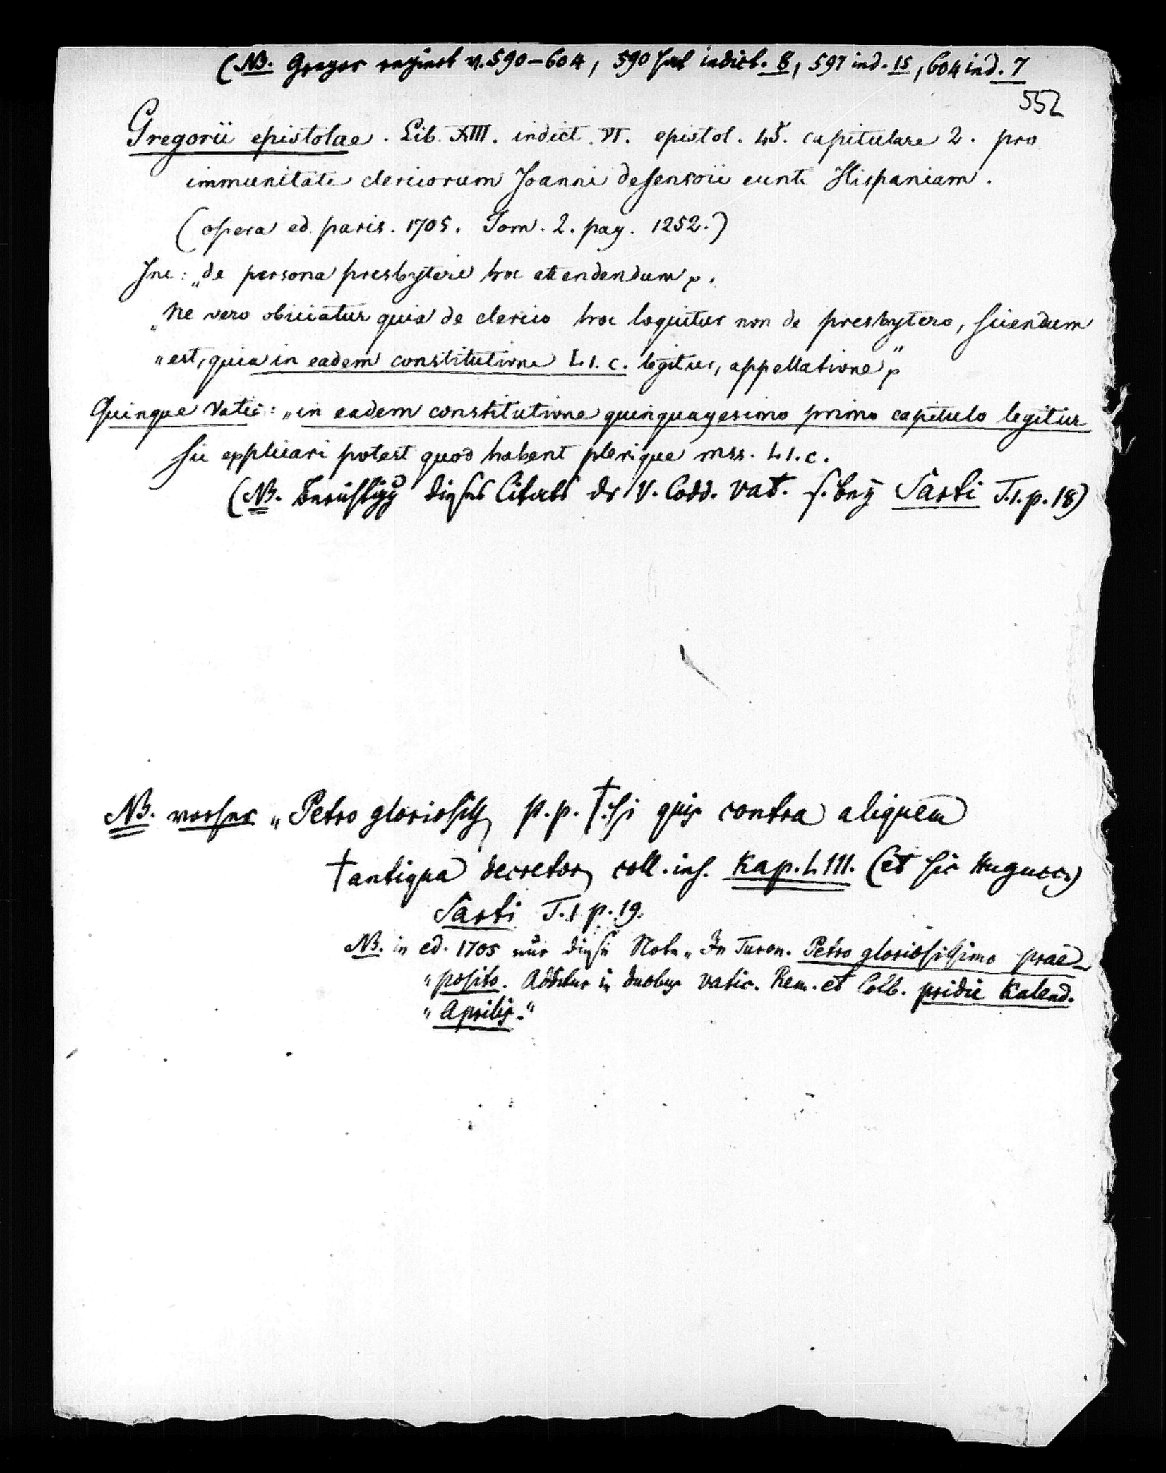 (NB. Gregor regiert v. 590–604, 590 indict. 8, 597 ind. 15, 604 ind. 7
552
Gregorii epistolae. Lib. XIII. indict. VI. epistol. 45. capitulare 2. pro
immunitate clericorum Joanni defensori eunti Hispaniam.
(opera ed. paris. 1705. Tom. 2. pag. 1252.)
Inc: „de persona presbyteri hoc attendendum
„Ne vero obiiciatur quia de clerico hoc loquitur non de presbytero, sciendum
„est, quia in eadem constitutione L 1. c. legitur, appellatione"
Quinque Vatic: „in eadem constitutione quinquagesimo primo capitulo legitur
Sic explicari potest quod habent plerique mss. L 1. c.
(NB. Berichtigg dieses Citats der V. Codd. vat. s. bey Sarti T.1. p. 18)
NB. vorher „Petro gloriosiss p.p. †: Si quis contra aliquem
† antiqua decretor coll. ins. Kap. L III. (et sic Hugucc)
Sarti T. 1 p. 19.
NB. in ed. 1705 nur diese Note „In Turon. Petro gloriosissimo prae-
„posito. Additur in duobus vatic. Rem. et Colb. pridie Kalend.
„Aprilis."